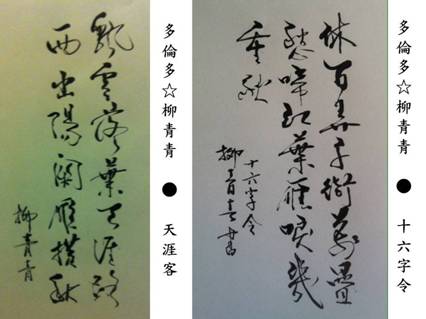 多倫多☆柳青青 ● 十六字令
休百卉千萬疊
愁啼紅葉雁唳幾
重秋
十六字令
柳青青書
多倫多☆柳青青 ● 天涯客
飄落葉天涯路
西出陽關雁橫秋
柳青青